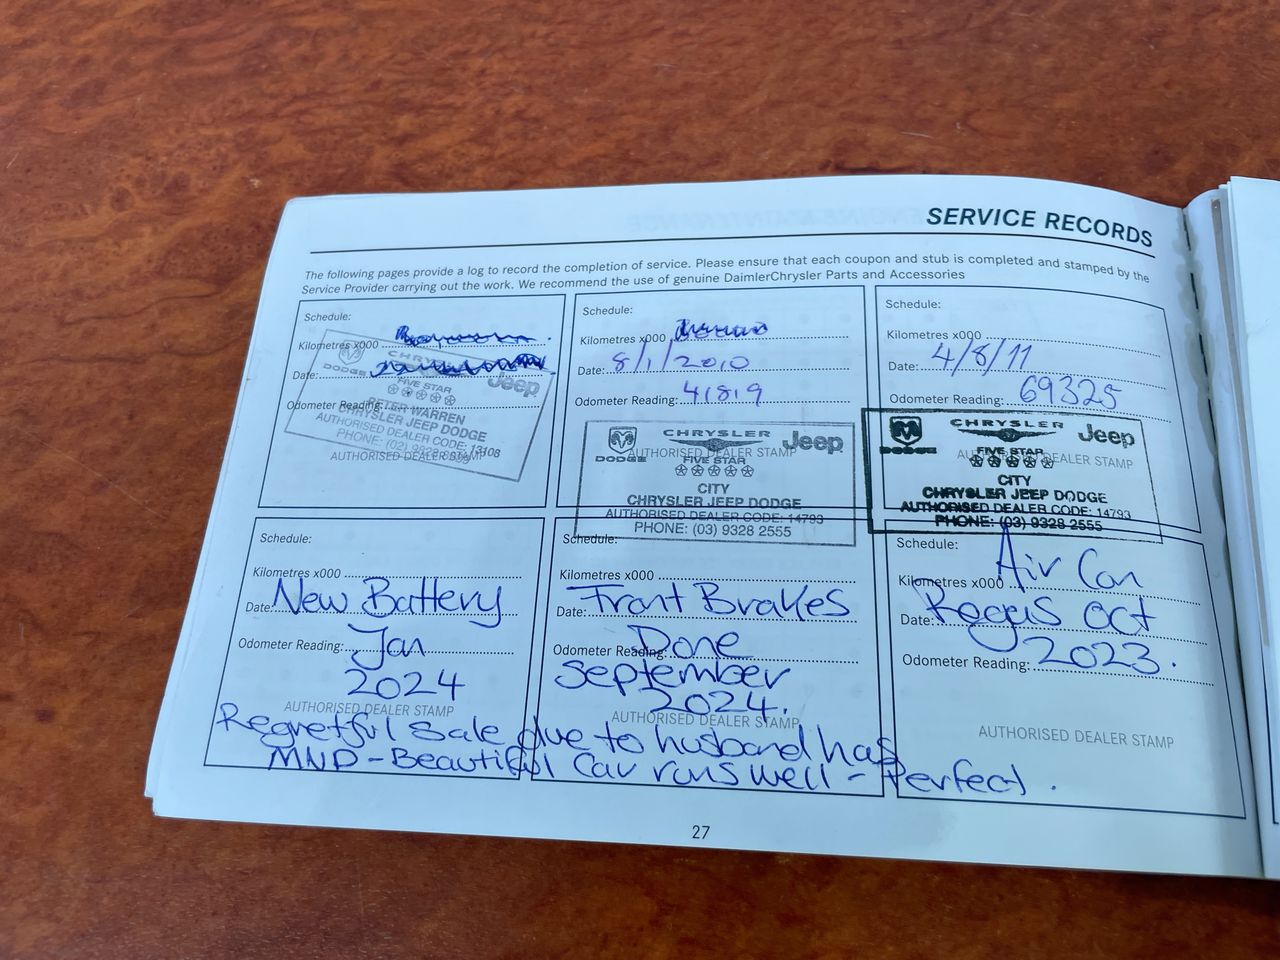 SERVICE RECORDS
The following pages provide a log to record the completion of service. Please ensure that each coupon and stub is completed and stamped by the
Service Provider carrying out the work. We recommend the use of genuine DaimlerChrysler Parts and Accessories
Schedule:
Kilometres x000
Date:
Odometer Reading:
DODGE
CHRYSLER
Jeep
FIVE STAR
PETER WARREN
CHRYSLER JEEP DODGE
AUTHORISED DEALER CODE: 13108
PHONE: (02) 9828
AUTHORISED DEALER STAMP
Schedule:
Kilometres x000
Date: 8/1/2010
41819
Odometer Reading:
DODGE
CHRYSLER
Jeep
AUTHORISED DEALER STAMP
FIVE STAR
CITY
CHRYSLER JEEP DODGE
AUTHORISED DEALER CODE: 14793
PHONE: (03) 9328 2555
Schedule:
Kilometres x000
Date: 4/8/11
Odometer Reading: 69325
DODGE
CHRYSLER
Jeep
AUTHORISED DEALER STAMP
FIVE STAR
CITY
CHRYSLER JEEP DODGE
AUTHORISED DEALER CODE: 14793
PHONE: (03) 9328 2555
Schedule:
Kilometres x000
Date: New Battery
Odometer Reading: Jan
2024
AUTHORISED DEALER STAMP
Schedule:
Kilometres x000
Date: Front Brakes
Odometer Reading: Done
September
2024.
AUTHORISED DEALER STAMP
Schedule:
Kilometres x000 Air Con
Date: Regas Oct
Odometer Reading: 2023.
AUTHORISED DEALER STAMP
Regretful sale due to husband has
MND - Beautiful Car runs well - Perfect.
27